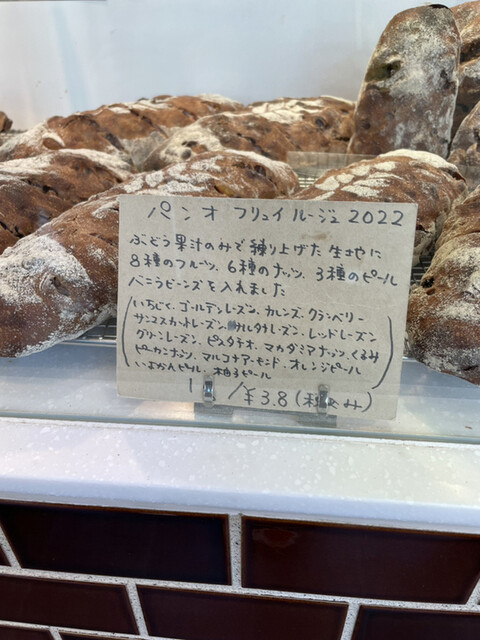 パン オ フリュイ ルージュ 2022
ぶどう果汁のみで練り上げた生地に
8種のフルーツ、6種のナッツ、3種のピール
バニラビーンズを入れました
(いちじく、ゴールデンレーズン、カレンズ、クランベリー
サンマスカットレーズン、サルタナレーズン、レッドレーズン
グリーンレーズン、ピスタチオ、マカダミアナッツ、くるみ
ピーカンナッツ、マルコナアーモンド、オレンジピール
いよかんピール 柚子ピール)
1 /¥3.8 (税込み)